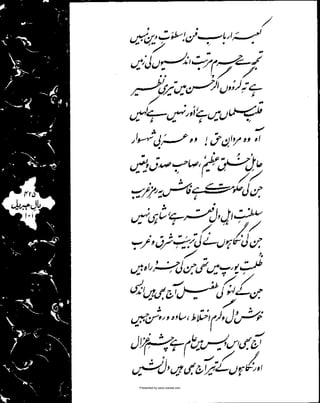 کعبۂ اربابِ فن! سطوتِ دینِ مبیں
تجھ سے حرم مرتبت اندلسیوں کی زمیں
ہے تہِ گردوں اگر حسن میں تیری نظیر
قلبِ مسلماں میں ہے، اور نہیں ہے کہیں
آہ وہ مردانِ حق! وہ عربی شہسوار
حاملِ خلقِ عظیم، صاحبِ صدق و یقیں
جن کی حکومت سے ہے فاش یہ رمزِ غریب
سلطنتِ اہلِ دل فقر ہے، شاہی نہیں
جن کی نگاہوں نے کی تربیتِ شرق و غرب
ظلمتِ یورپ میں تھی جن کی خرد راہ بیں
جن کے لہو کی طفیل آج بھی ہیں اندلسی
خوش دل و گرم اختلاط، سادہ و روشن جبیں
آج بھی اس دیس میں عام ہے چشمِ غزال
اور نگاہوں کے تیر آج بھی ہیں دل نشیں
۴۲۵
بالِ جبریل
۱۰۱